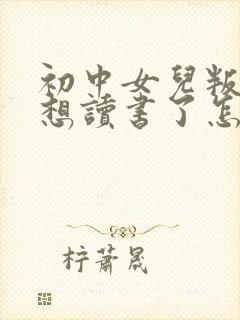 初中女兒叛
想讀書了怎
柠蕭晟